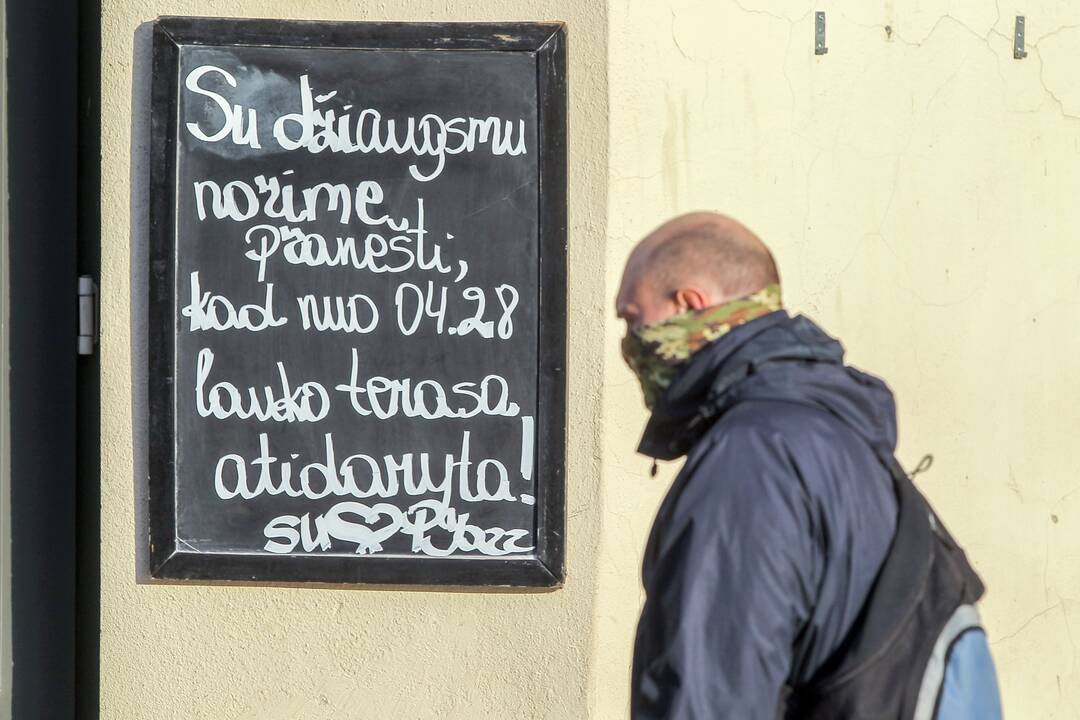 Su džiaugsmu
norime
pranešti,
kad nuo 04.28
lauko terasa
atidaryta!
su